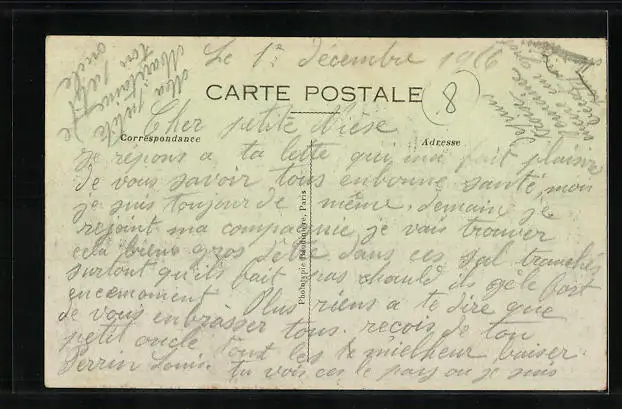 Le 1er décembre 1916
CARTE POSTALE
8
Cher petite Nièse
Correspondance
Adresse
Je répons a ta lette qui ma fait plaisir
de vous savoir tous enbonne santé, moi
je suis toujour de même, demain je
rejoint ma compagnie, je vais trouver
cela bien gros dêtre dans ces sal tranchés
surtout qu'ils fait pas chauld ils gèle fort
encemoment Plus riens a te dire que
de vous enbrasser tous. recois de ton
petit oncle tout les miellheur baiser.
Perrin Louis. tu vois ces le pays ou je suis
Ma petite
ton petit
oncle
Phototypie Baudinière, Paris